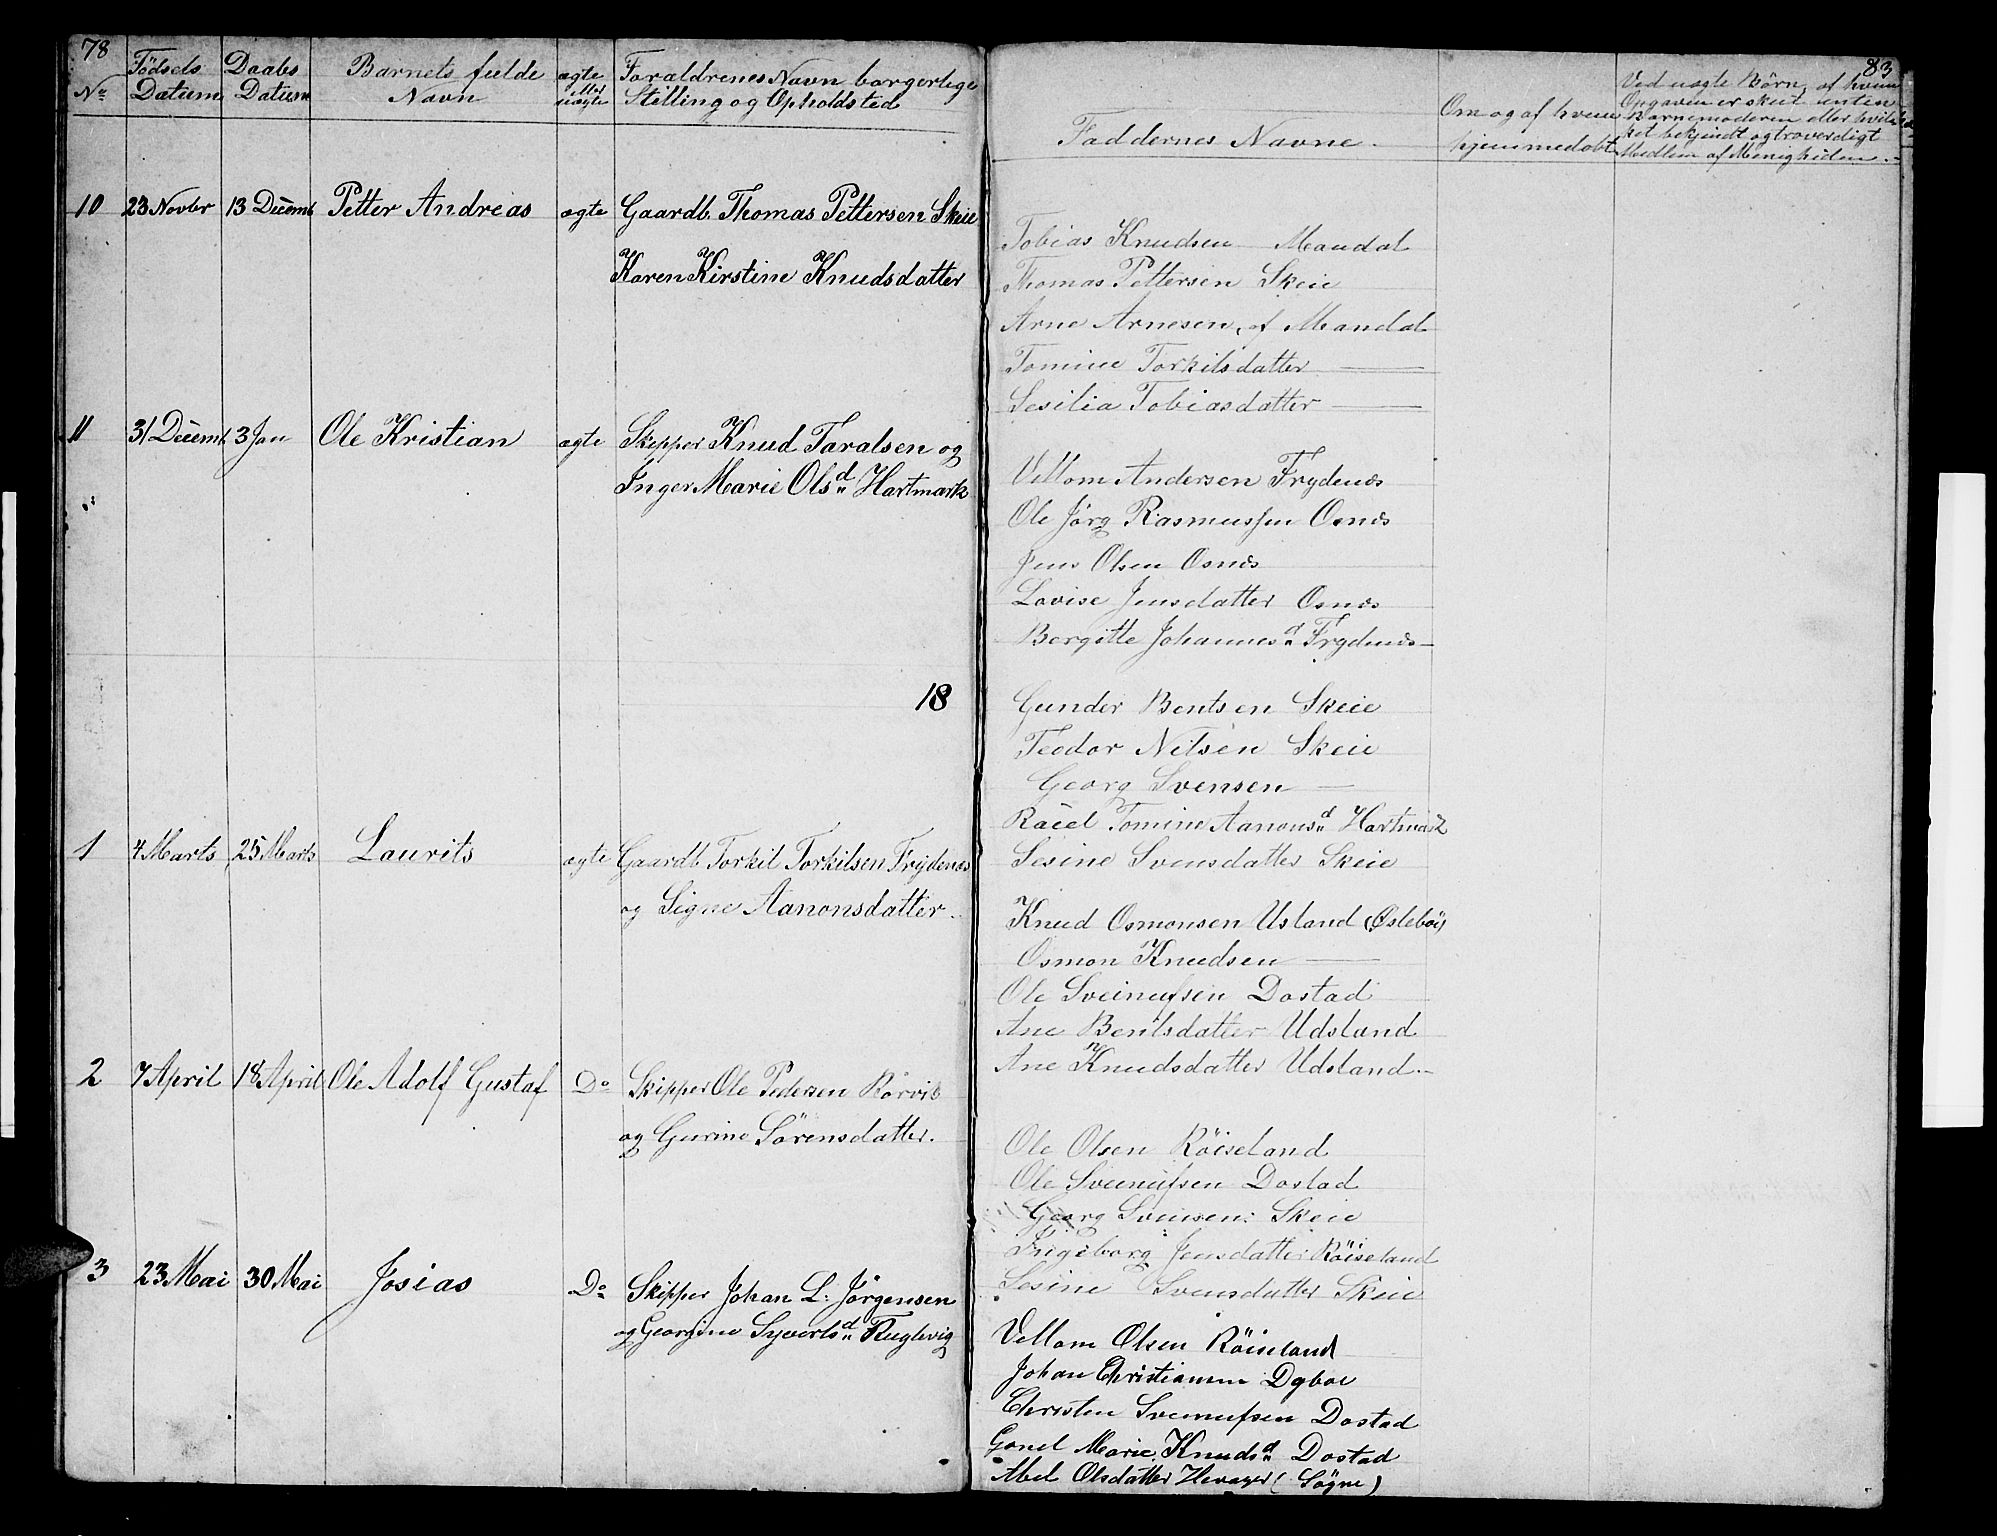 78
No
Födsels
Datum
Daabs
Datum
Barnets fulde
Navn
ægte
eller
uægte
Foraldrenes Navn borgerlige
Stilling og Opholdsted
10 23 Novbr 13 Decemb Petter Andreas ægte Gaardb. Thomas Pettersen Skeie
Karen Kirstine Knudsdatter
11 31 Decemb 3 Jan Ole Kristian ægte Skipper Knud Taralsen og
Inger Marie Olsd Hartmark
18
1 4 Marts 25 Marts Laurits ægte Gaardb Torkil Torkilsen Frydenæs
og Signe Aanonsdatter
2 7 April 18 April Ole Adolf Gustaf Do Skipper Ole Pedersen Rörvik
og Gurine Sörensdatter.
3 23 Mai 30 Mai Josias Do Skipper Johan L: Jörgensen
og Georgine Syvertsd Fuglevig
83
Faddernes Navne.
Om og af hvem
hjemmedöbt
Ved uægte Börn, af hvem
Opgaven er skeet enten
Barnemoderen eller hvil
ket bekjendt og troverdigt
Medlem af Menigheden.
Tobias Knudsen Mandal
Thomas Pettersen Skeie
Arne Arnesen, af Mandal
Tomine Torkilsdatter —
Sesilia Tobiasdatter —
Vellom Andersen Frydenæs
Ole Jörg Rasmussen Osnæs
Jens Olsen Osnæs
Lovise Jensdatter Osnæs
Bergitte Johannesd Frydenæs
Gunder Bentsen Skeie
Teodor Nilsen Skeie
Georg Svensen —
Racel Tomine Aanonsd Hartmark
Sesine Svensdatter Skeie
Knud Osmonsen Usland (Öslebö)
Osmon Knudsen —
Ole Sveinufsen Dostad
Ane Bentsdatter Udsland
Ane Knudsdatter Udsland.
Ole Olsen Röiseland
Ole Sveinufsen Dostad
Georg Svensen: Skeie
Ingeborg Jensdatter Röiseland
Sesine Svensdatter Skeie
Vellom Olsen Röiseland
Johan Christiansen Dyboe
Christen Sveinufsen Dostad
Gonel Marie Knudsd Dostad
Abel Olsdatter (Sögne)